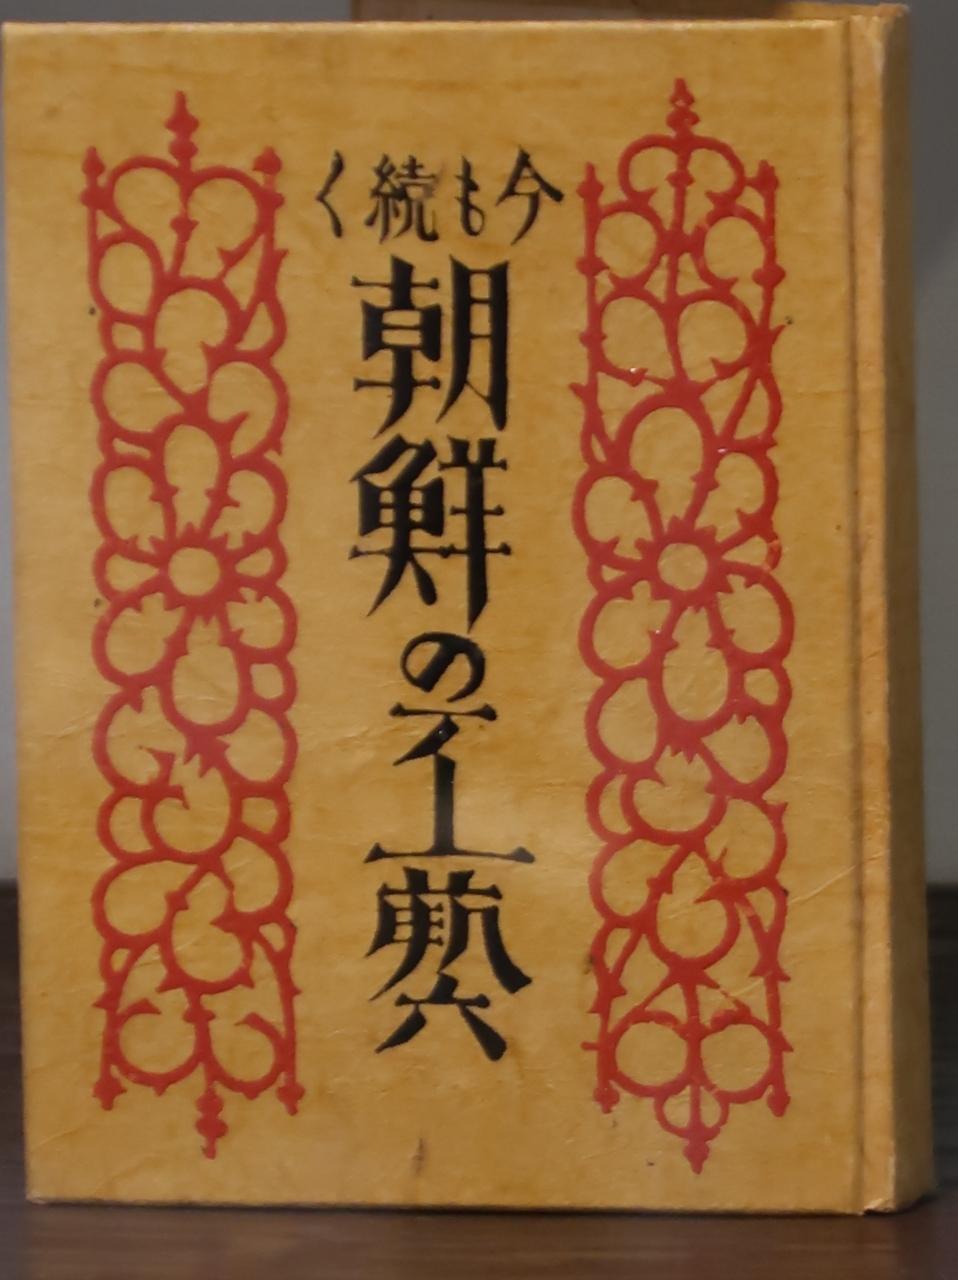 今も続く
朝鮮の工藝